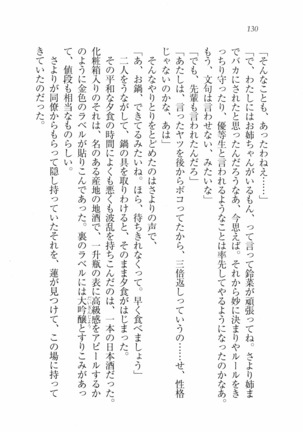 130
「そんなことも、あったわねえ……」
「で、わたしにはお姉ちゃんがいるもん、って言って鈴菜が頑張ってね。さより姉ま
でバカにされたと思ったんだろうなあ、今思えば。それから妙に決まりやルールをき
っちり守ったり、優等生と言われるようなことは率先してやるようになったのかなあ。
もう、文句は言わせない、みたいな」
「でも、先輩も言われたんだろ」
「あたしは、言ったヤツを後からボコってたから、三倍返しっていうの……せ、性格
じゃないのかな、あは」
そんなやりとりをとどめたのはさよりの声で、
「あ、お鍋、できてるみたいね。ほら、待ちきれなくって。早く食べましょう」
二人をうながして、鍋の具を取りわけると、そのまま夕食がはじまった。
その平和な夕食の時間によくも悪くも波乱を持ちこんだのは、一本の日本酒だった。
化粧箱入りのそれは、名のある産地の地酒で、一升瓶の表に高級感をアピールするか
のように金色のラベルが貼りこんであった。裏のラベルには大吟醸とすりこみがあっ
て、値段も相当なものらしい。
さよりが同僚からもらって隠し持っていたそれを、蓮が見つけて、この場に持って
きていたのだった。